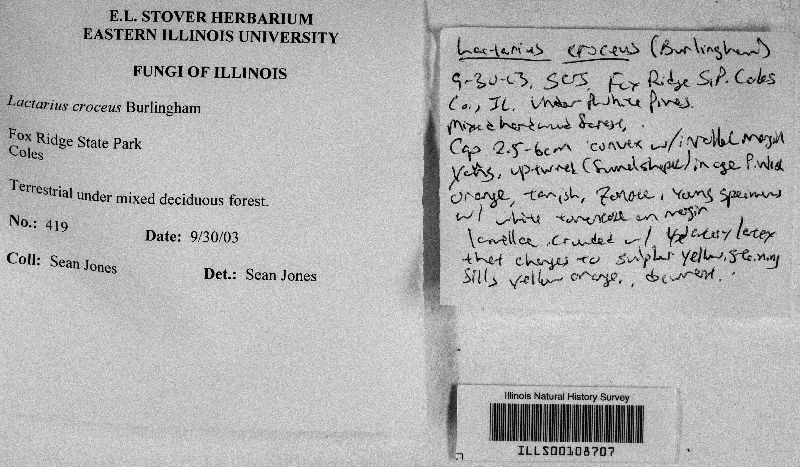 E.L. STOVER HERBARIUM
EASTERN ILLINOIS UNIVERSITY
FUNGI OF ILLINOIS
Lactarius croceus Burlingham
Fox Ridge State Park
Coles
Terrestrial under mixed deciduous forest.
No.: 419
Date: 9/30/03
Coll: Sean Jones
Det.: Sean Jones
Lactarius croceus (Burlingham)
9-30-03, SCJ, Fox Ridge S.P. Coles
Co., IL. Under white Pines
mixed hardwood forest,
Cap 2.5-6cm convex w/ inrolled margin
young, upturned (funnel shaped) in age
orange, tanish, Zonate, Young specimens
w/ white tomentose on margin
lamellae crowded w/ watery latex
that changes to sulpher yellow, staining
gills yellow orange,
Illinois Natural History Survey
ILLS00108707